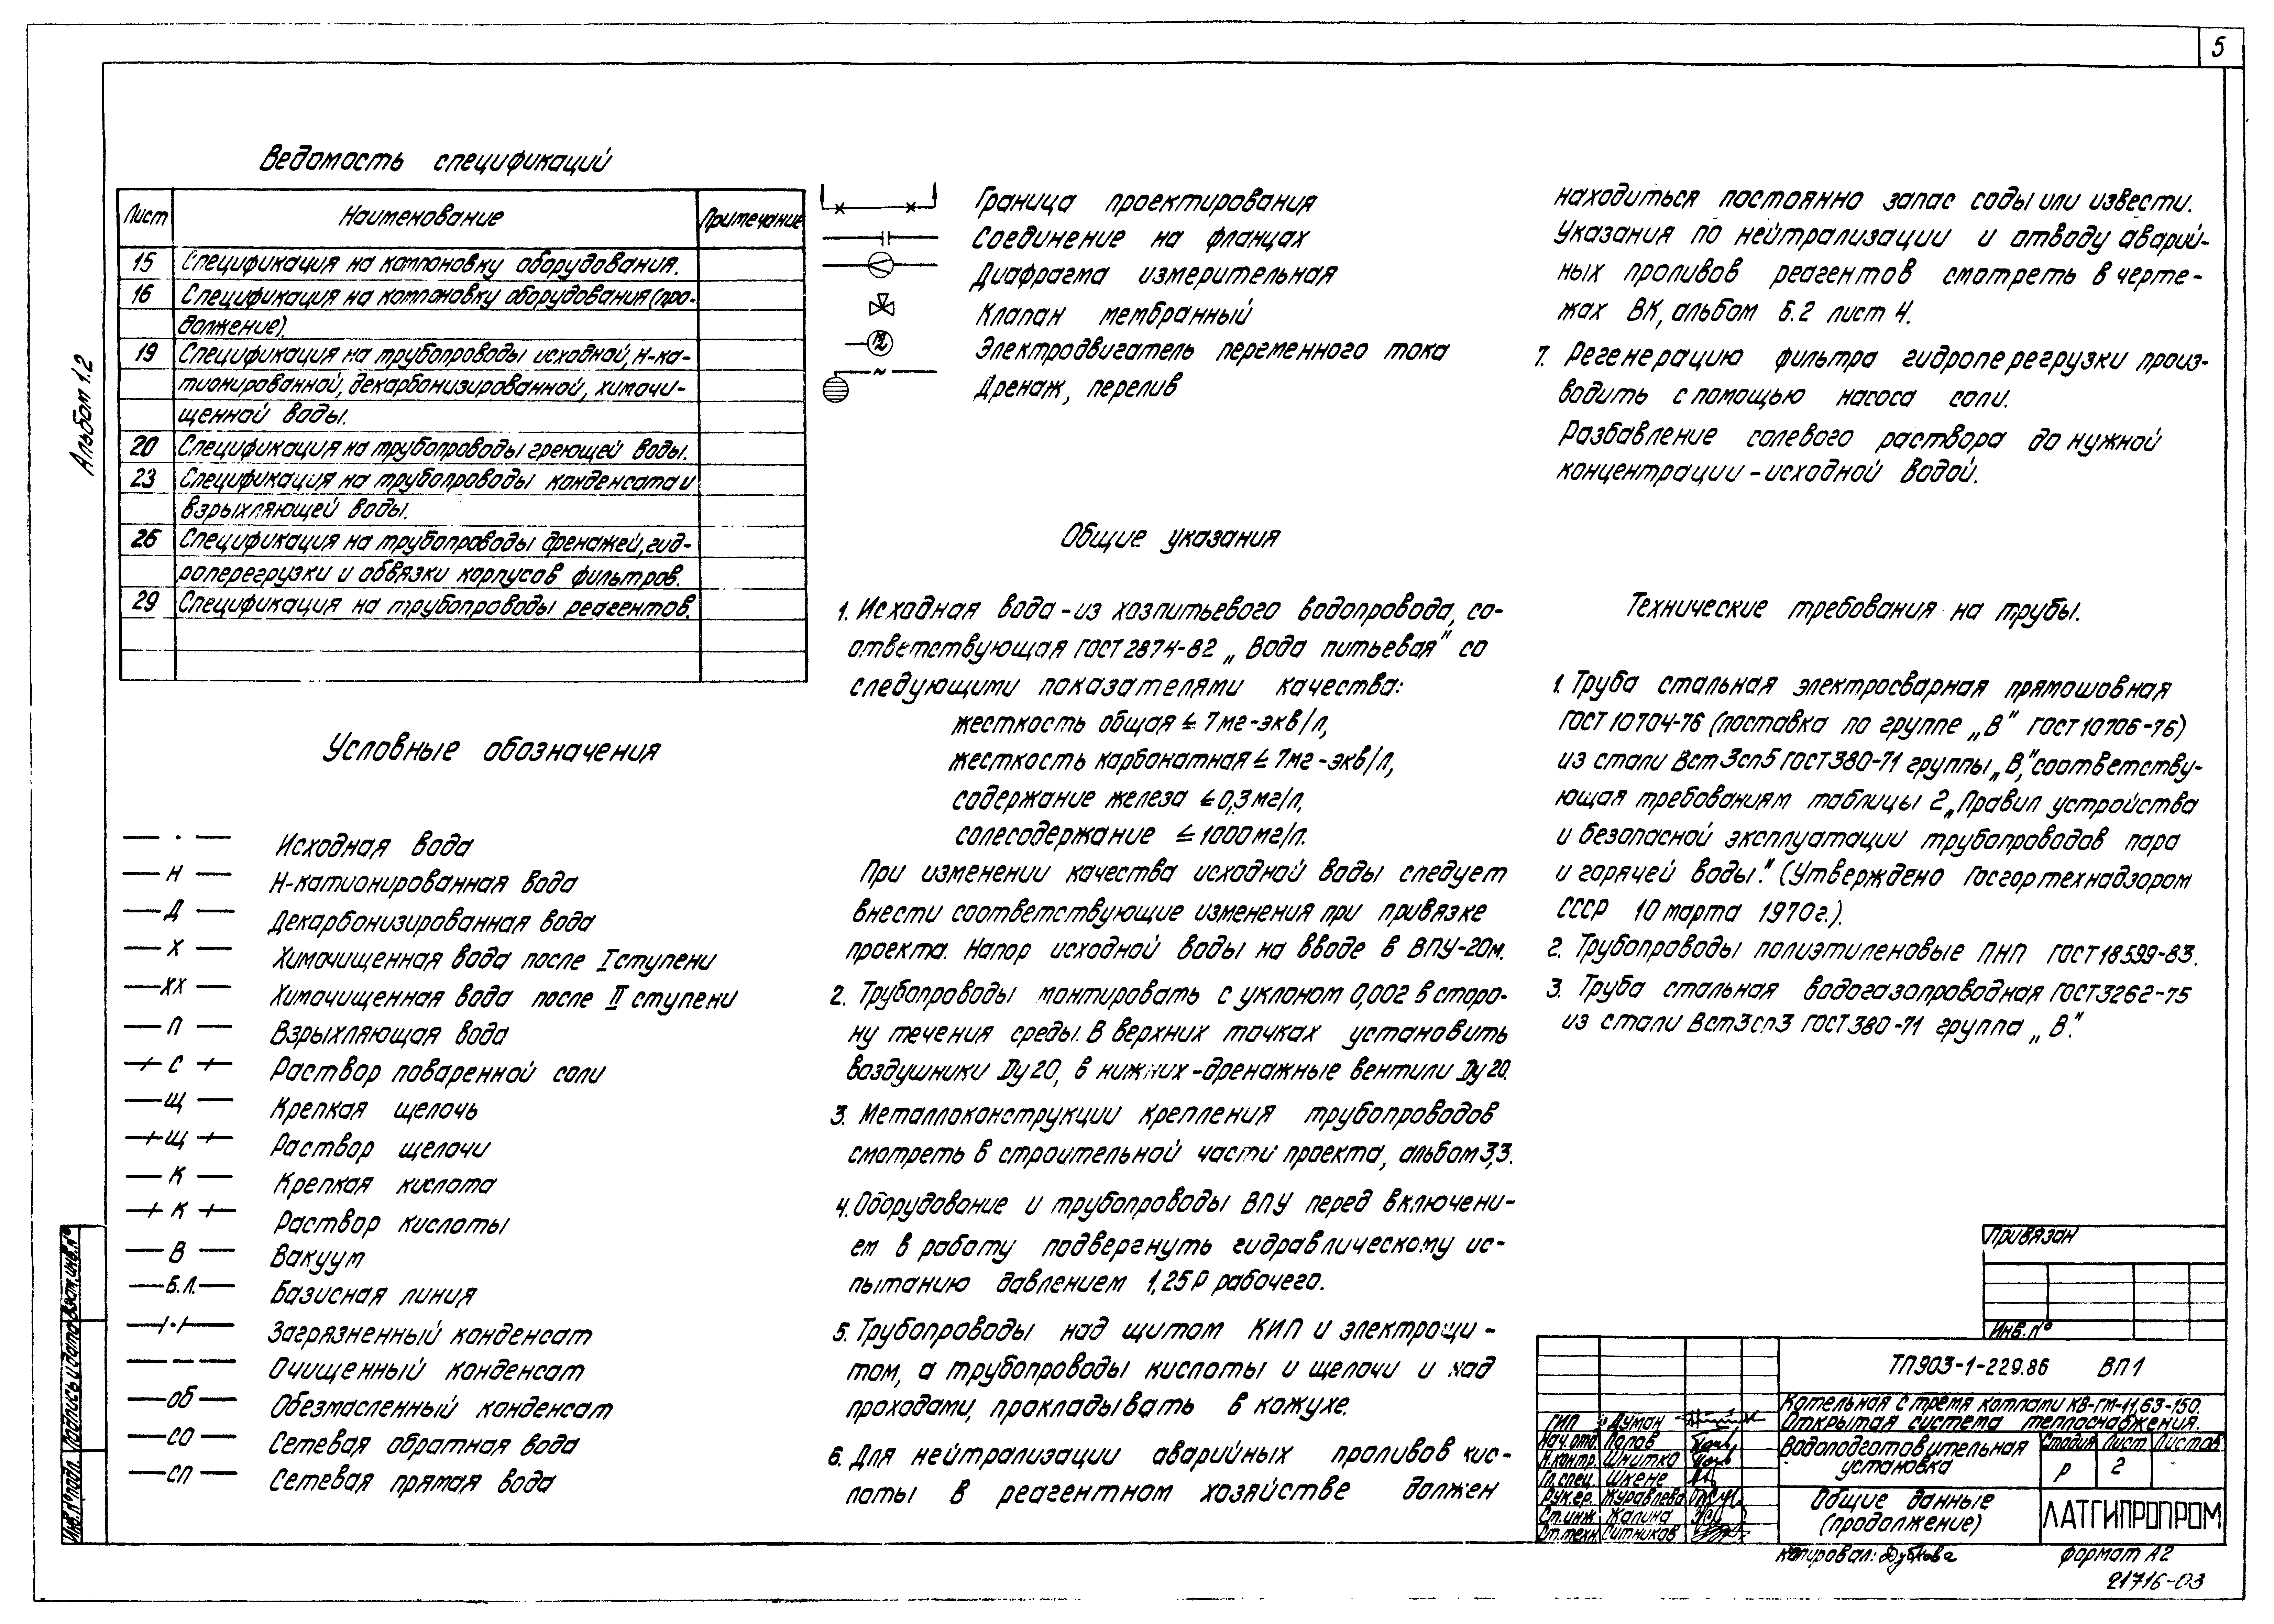 5
Альбом 1.2
Ведомость спецификаций
Лист Наименование Примечание
15 Спецификация на компоновку оборудования.
16 Спецификация на компоновку оборудования (про-
должение).
19 Спецификация на трубопроводы исходной, Н-ка-
тионированной, декарбонизированной, химочи-
щенной воды.
20 Спецификация на трубопроводы греющей воды.
23 Спецификация на трубопроводы конденсата и
взрыхляющей воды.
26 Спецификация на трубопроводы дренажей, гид-
роперегрузки и обвязки корпусов фильтров.
29 Спецификация на трубопроводы реагентов.
Условные обозначения
— · — Исходная вода
— Н — Н-катионированная вода
— Д — Декарбонизированная вода
— Х — Химочищенная вода после I ступени
— ХХ — Химочищенная вода после II ступени
— П — Взрыхляющая вода
С Раствор поваренной соли
— Щ — Крепкая щелочь
Щ Раствор щелочи
— К — Крепкая кислота
К Раствор кислоты
— В — Вакуум
— Б.Л. — Базисная линия
Загрязненный конденсат
Очищенный конденсат
— об — Обезмасленный конденсат
— СО — Сетевая обратная вода
— СП — Сетевая прямая вода
Граница проектирования
Соединение на фланцах
Диафрагма измерительная
Клапан мембранный
Электродвигатель переменного тока
Дренаж, перелив
Общие указания
1. Исходная вода - из хозпитьевого водопровода, со-
ответствующая ГОСТ 2874-82 „Вода питьевая" со
следующими показателями качества:
жесткость общая ≤ 7 мг-экв/л,
жесткость карбонатная ≤ 7мг-экв/л,
содержание железа ≤ 0,3 мг/л,
солесодержание ≤ 1000 мг/л.
При изменении качества исходной воды следует
внести соответствующие изменения при привязке
проекта. Напор исходной воды на вводе в ВПУ-20м.
2. Трубопроводы монтировать с уклоном 0,002 в сторо-
ну течения среды. В верхних точках установить
воздушники Dу 20, в нижних - дренажные вентили Dу 20.
3. Металлоконструкции крепления трубопроводов
смотреть в строительной части проекта, альбом 3,3.
4. Оборудование и трубопроводы ВПУ перед включени-
ем в работу подвергнуть гидравлическому ис-
пытанию давлением 1,25 Р рабочего.
5. Трубопроводы над щитом КИП и электрощи-
том, а трубопроводы кислоты и щелочи и над
проходами, прокладывать в кожухе.
6. Для нейтрализации аварийных проливов кис-
лоты в реагентном хозяйстве должен
находиться постоянно запас соды или извести.
Указания по нейтрализации и отводу аварий-
ных проливов реагентов смотреть в черте-
жах ВК, альбом 6.2 лист 4.
7. Регенерацию фильтра гидроперегрузки произ-
водить с помощью насоса соли.
Разбавление солевого раствора до нужной
концентрации - исходной водой.
Технические требования на трубы.
1. Труба стальная электросварная прямошовная
ГОСТ 10704-76 (поставка по группе „В" ГОСТ 10706-76)
из стали Вст3сп5 ГОСТ 380-71 группы „В", соответству-
ющая требованиям таблицы 2 „Правил устройства
и безопасной эксплуатации трубопроводов пара
и горячей воды." (Утверждено Госгортехнадзором
СССР 10 марта 1970г.).
2. Трубопроводы полиэтиленовые ПНП ГОСТ 18599-83.
3. Труба стальная водогазопроводная ГОСТ 3262-75
из стали Вст3сп3 ГОСТ 380-71 группа „В."
Привязан
Инв. №
ТП903-1-229.86 ВП1
Котельная с тремя котлами КВ-ГМ-11,63-150.
Открытая система теплоснабжения.
ГИП Думан
Нач. отд. Попов
Н.контр. Шнитка
Гл. спец. Шкене
Рук.гр. Журавлева
Ст.инж Жалина
Ст.техн Ситников
Водоподготовительная
установка
Стадия Лист Листов
Р 2
Общие данные
(продолжение)
ЛАТГИПРОПРОМ
Копировал: Дубкова формат А2
21716-03
Инв.№ подл. Подпись и дата Взам.инв.№